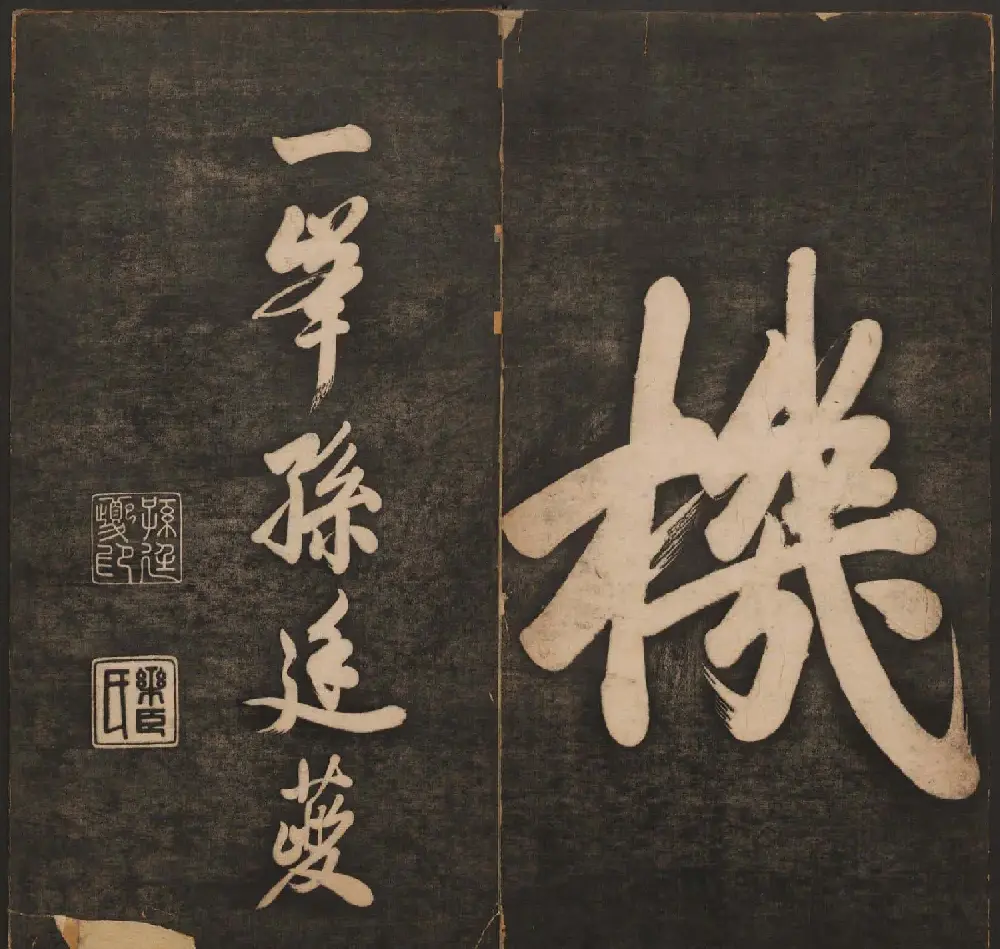 機
一峯孫廷夔
孫廷夔印
樂臣氏